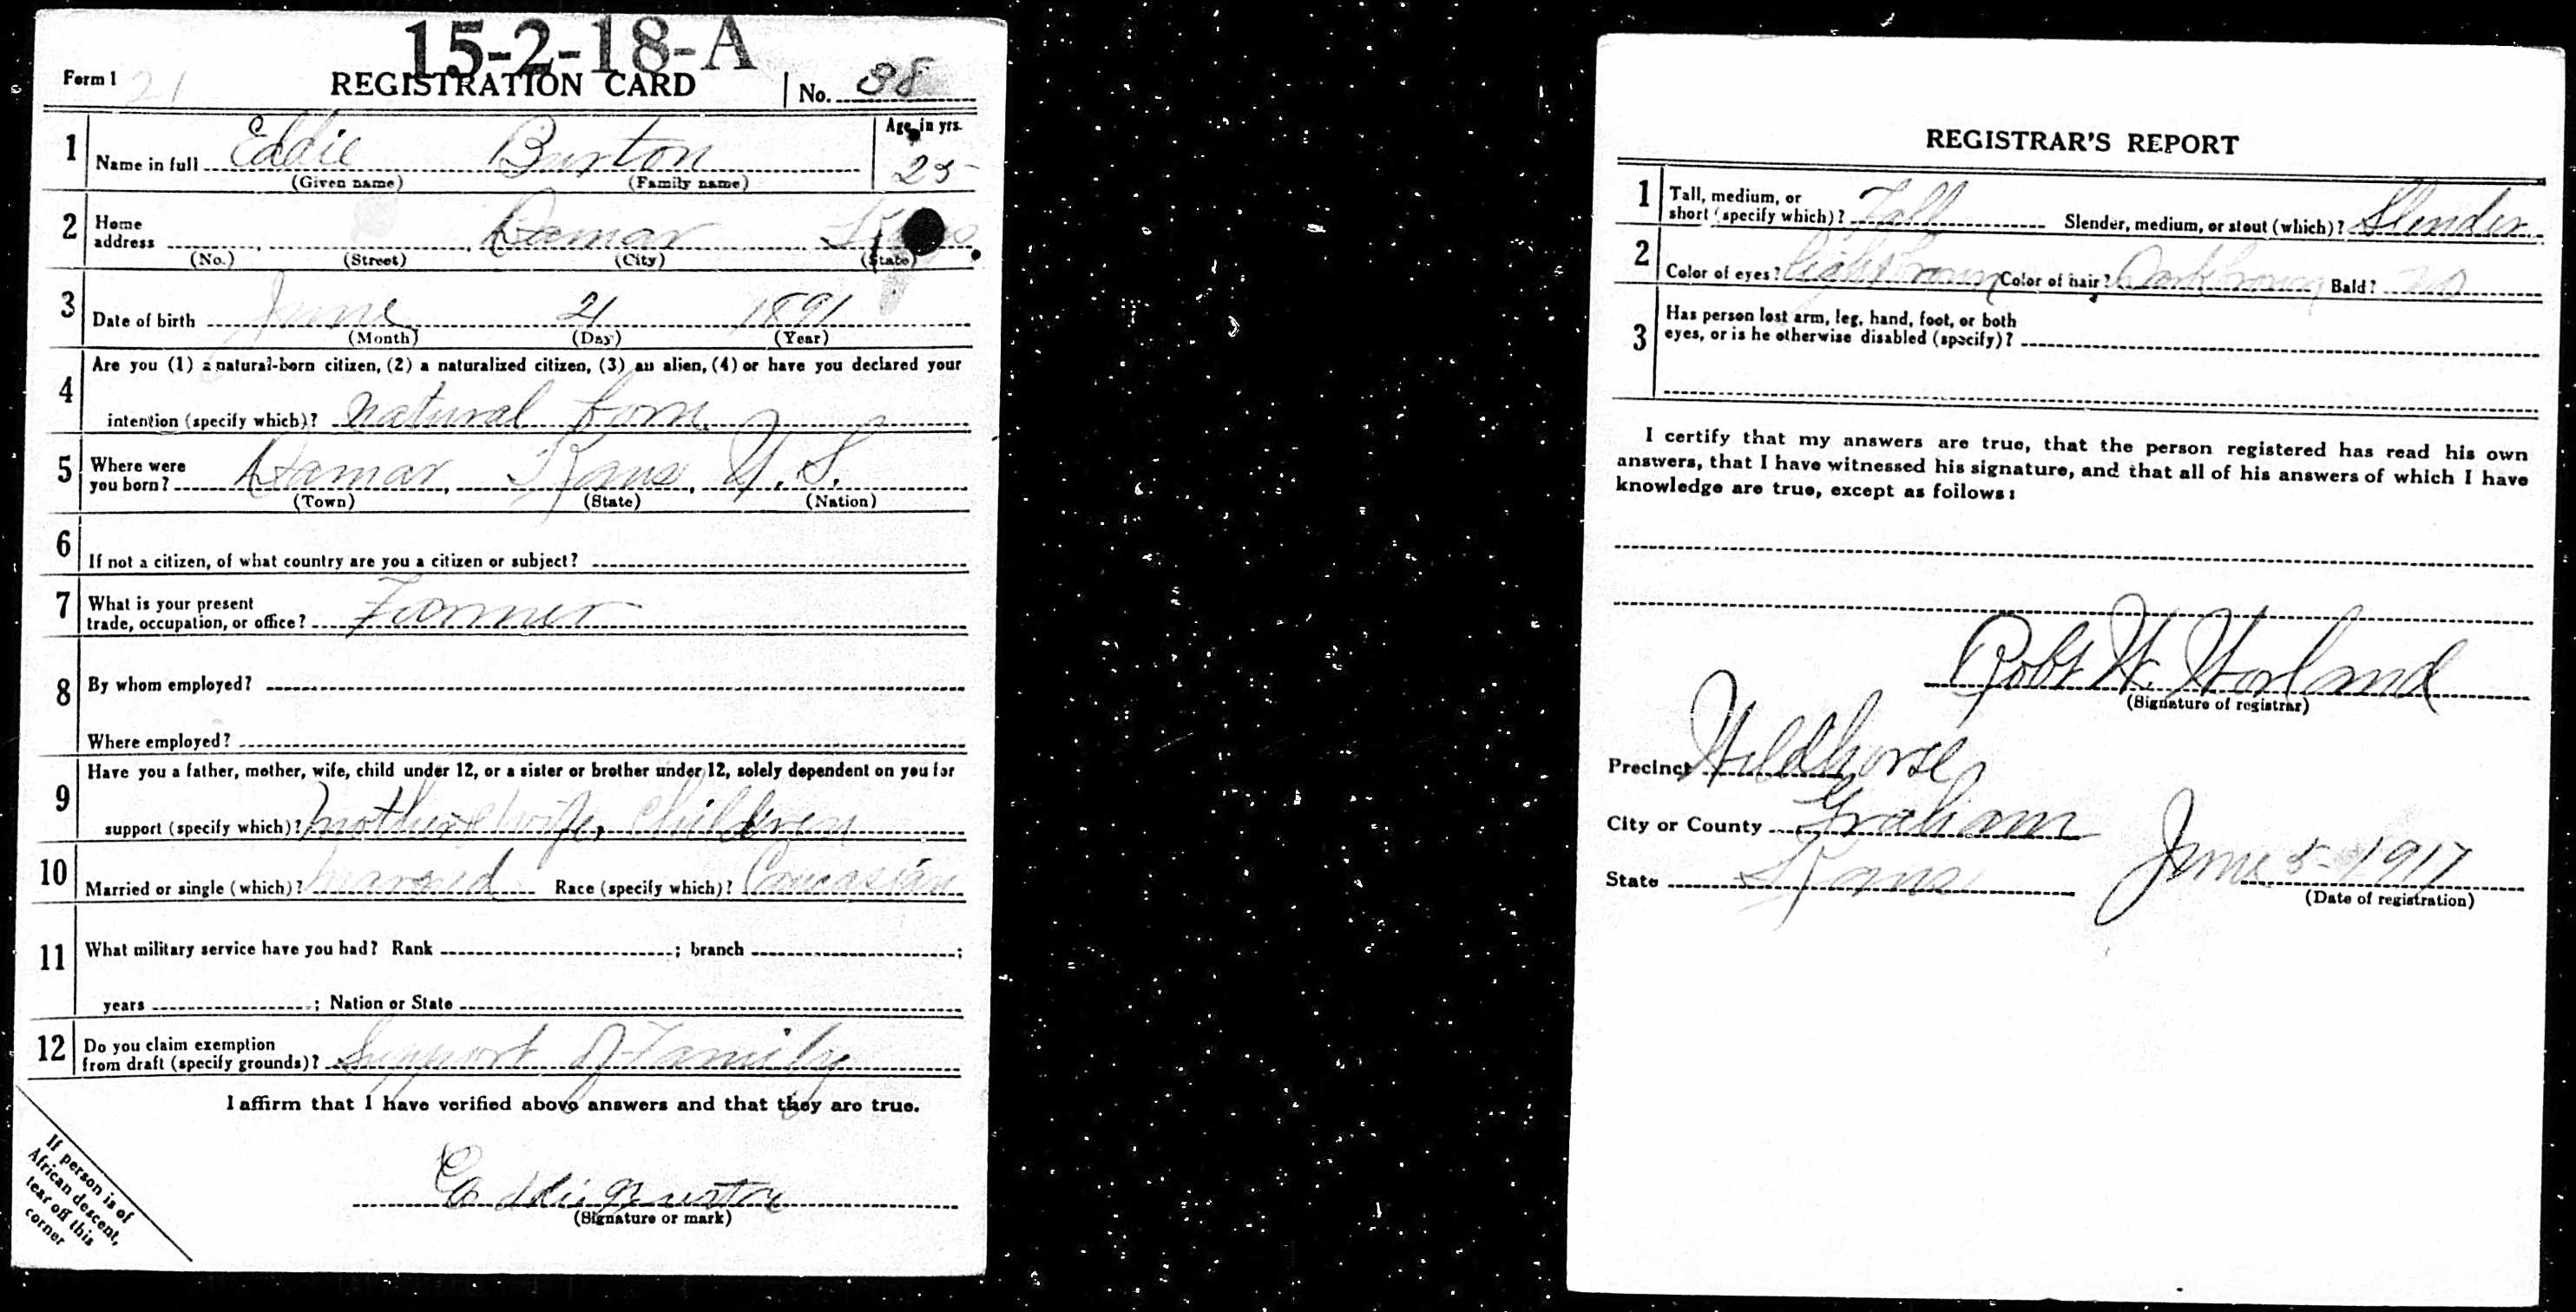 15-2-18-A
Form 1 21 REGISTRATION CARD No. 38
1 Name in full Eddie Burton Age, in yrs. 25
(Given name) (Family name)
2 Home address Damar Kans
(No.) (Street) (City) (State)
3 Date of birth June 21 1891
(Month) (Day) (Year)
4 Are you (1) a natural-born citizen, (2) a naturalized citizen, (3) an alien, (4) or have you declared your
intention (specify which)? natural born
5 Where were you born? Damar, Kans, U.S.
(Town) (State) (Nation)
6 If not a citizen, of what country are you a citizen or subject?
7 What is your present
trade, occupation, or office? Farmer
8 By whom employed?
Where employed?
9 Have you a father, mother, wife, child under 12, or a sister or brother under 12, solely dependent on you for
support (specify which)? Mother & wife, children
10 Married or single (which)? married Race (specify which)? Caucasian
11 What military service have you had? Rank ; branch ;
years ; Nation or State
12 Do you claim exemption
from draft (specify grounds)? Support of Family
I affirm that I have verified above answers and that they are true.
Eddie Burton
(Signature or mark)
If person is of
African descent,
tear off this
corner
REGISTRAR'S REPORT
1 Tall, medium, or
short (specify which)? Tall Slender, medium, or stout (which)? Slender
2 Color of eyes? light brown Color of hair? Dark brown Bald? no
3 Has person lost arm, leg, hand, foot, or both
eyes, or is he otherwise disabled (specify)?
I certify that my answers are true, that the person registered has read his own
answers, that I have witnessed his signature, and that all of his answers of which I have
knowledge are true, except as follows:
Robt W.
(Signature of registrar)
Precinct Wildhorse
City or County Graham
State Kans June 5-1917
(Date of registration)